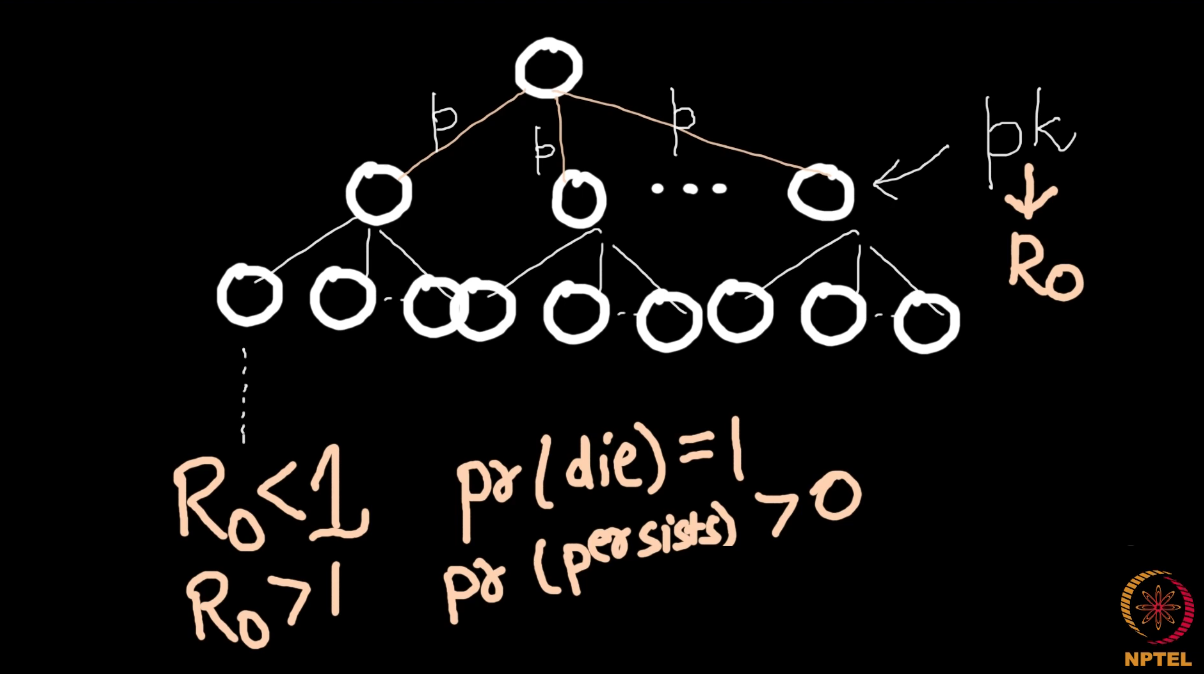 p p p pk
R0
R0<1 pr(die)=1
R0>1 pr(persists)>0
NPTEL